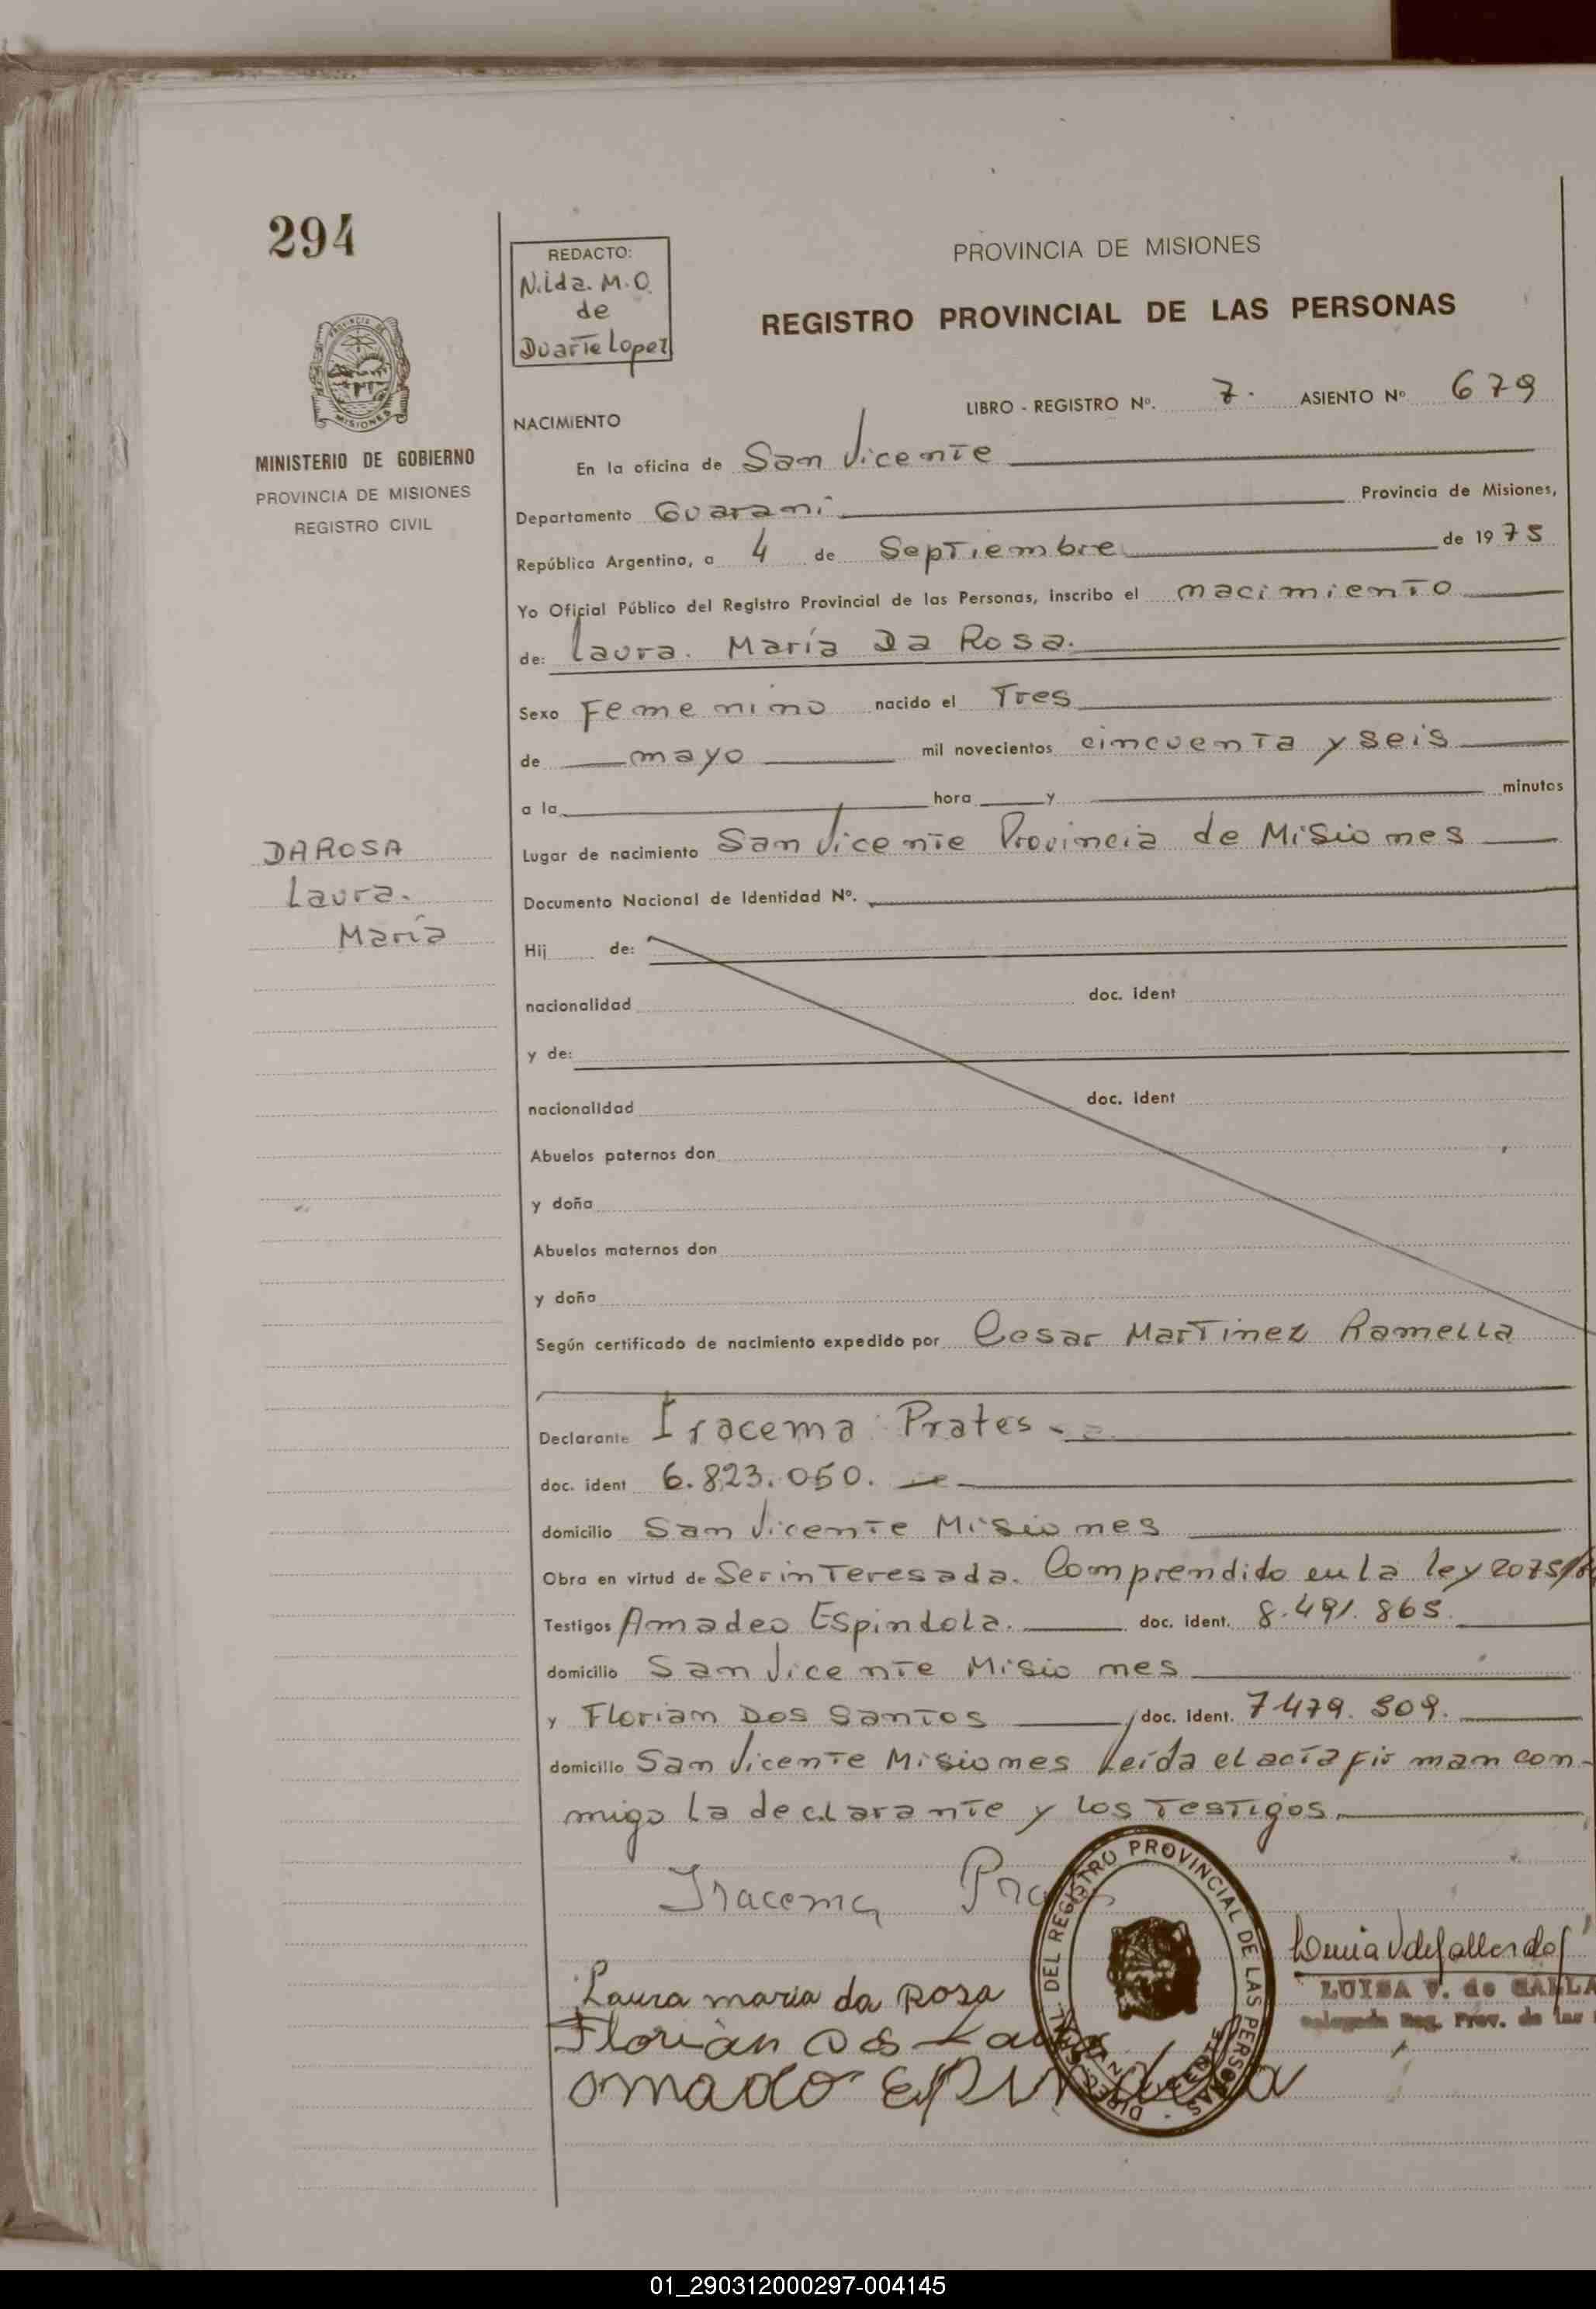 294
REDACTO:
Nilda. M.O.
de
Duarte Lopez
PROVINCIA DE MISIONES
REGISTRO PROVINCIAL DE LAS PERSONAS
PROVINCIA DE
MISIONES
MINISTERIO DE GOBIERNO
PROVINCIA DE MISIONES
REGISTRO CIVIL
LIBRO - REGISTRO Nº. 7. ASIENTO Nº 679
NACIMIENTO
En la oficina de San Vicente
Departamento Guarani Provincia de Misiones,
República Argentina, a 4 de Septiembre de 1975
Yo Oficial Público del Registro Provincial de las Personas, inscribo el nacimiento
de: Laura. María Da Rosa.
Sexo Femenino nacido el Tres
de mayo mil novecientos cincuenta y seis
a la hora y minutos
Lugar de nacimiento San Vicente Provincia de Misiones
DAROSA
Laura.
María
Documento Nacional de Identidad Nº.
Hij de:
nacionalidad doc. ident
y de:
nacionalidad doc. ident
Abuelos paternos don
y doña
Abuelos maternos don
y doña
Según certificado de nacimiento expedido por Cesar Martinez Ramella
Declarante Iracema Prates
doc. ident 6.823.050.
domicilio San Vicente Misiones
Obra en virtud de Ser interesada. Comprendido en la ley 2075
Testigos Amadeo Espindola. doc. ident. 8.491.865.
domicilio San Vicente Misiones
y Florian Dos Santos doc. ident. 7.479.509.
domicilio San Vicente Misiones Leída el acta firman con-
migo la declarante y los testigos.
Iracema
Laura maria da Rosa
Florian Dos
omado
DIRECC. GRAL. DEL REGISTRO PROVINCIAL DE LAS PERSONAS
SAN VICENTE
LUISA V. de GALLA
Delegada Reg. Prov. de las
01_290312000297-004145